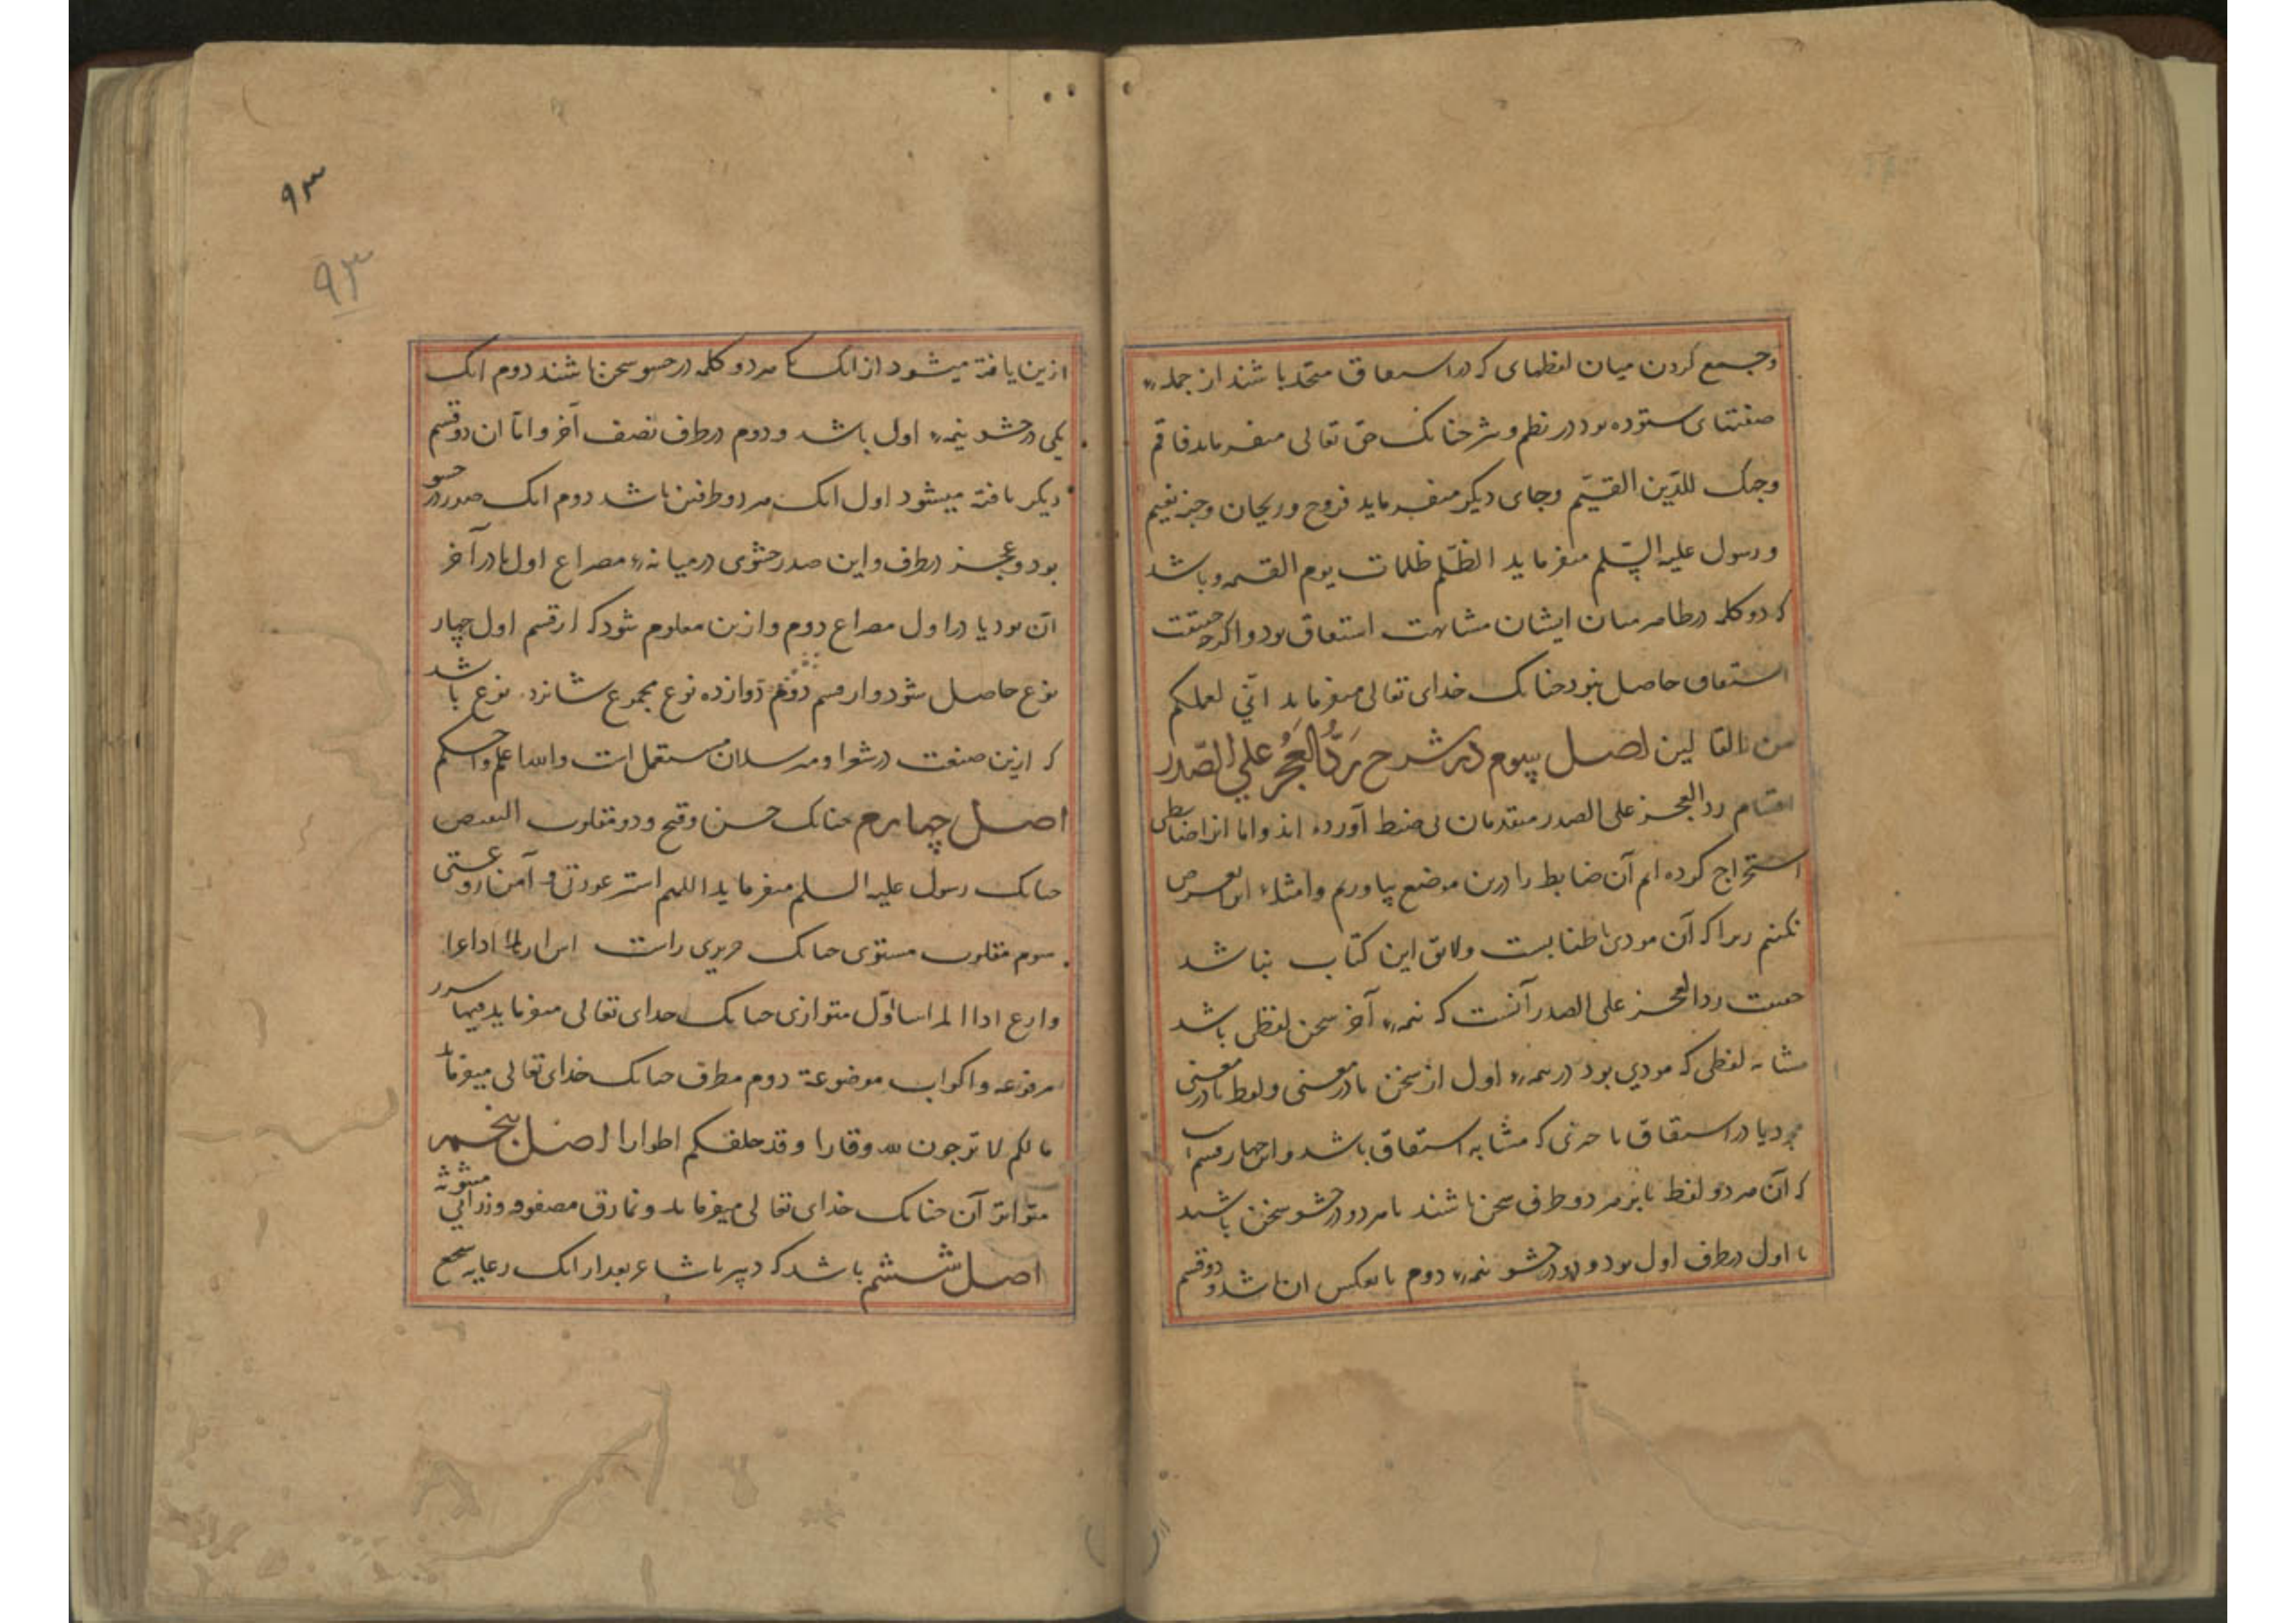 وجمع کردن میان لفظهای که در اسعاق متحد باشند از جمله
صفتهای ستوده بود در نظم و نثر حنانک حق تعالی میفرماید فاقم
وجهک للدّین القیّم وجای دیگر میفرماید فروح وریحان وجنة نعیم
ورسول علیه السّلم میفرماید الظّلم ظلمات یوم القیمه وباشد
که دو کلمه در ظاهر میان ایشان مشابهت اشتقاق بود واگرچه حقیقت
اشتقاق حاصل نبود حنانک خدای تعالی میفرماید انّی لعملکم
من القالین اصل سیوم در شرح رَدُّ العَجُز علی الصّدر
اقسام رد العجز علی الصدر متقدمان بی ضبط آورده اند واما انرا ضابطی
استخراج کرده ام آن ضابط را درین موضع بیاورم وامثلهٔ
نکنم زیرا که آن مودی باطنابست ولایق این کتاب نباشد
حقیقت رد العجز علی الصدر آنست که نیمهٔ آخر سخن لفظی باشد
مشابه لفظی که مودی بود در نیمهٔ اول از سخن یا در معنی ولفظ یا در معنی
یا در اشتقاق یا حرفی که مشابه اشتقاق باشد واین چهار قسم
که آن هر دو لفظ یا بر هر دو طرف سخن باشند یا هر دو در حشو سخن باشند
یا اول در طرف اول بود ودوم در حشو نیمهٔ دوم یا بعکس ان باشد ودو قسم
ازین یافته میشود از انک یا هر دو کلمه در حشو سخن باشند دوم انک
یکی در حشو نیمهٔ اول باشد ودوم در طرف نصف آخر وامّا ان دو قسم
دیگر یافته میشود اول انک هر دو طرفین باشد دوم انک صدر در حشو
بود وعجز در طرف واین صدر حشوی در میانهٔ مصراع اول یا در آخر
آن بود یا در اول مصراع دوم وازین معلوم شود که از قسم اول چهار
نوع حاصل شود واز قسم دوّم دوازده نوع مجموع شانزده نوع باشد
که ازین صنعت در شعرا ومترسلان مستعمل است والله اعلم واحکم
اصل چهارم حنانک حسن وقبح ودو مقلوب البعض
حنانک رسول علیه السلم میفرماید اللهم استر عورتی وآمن روعتی
سوم مقلوب مستوی حنانک حریری راست اس ارملا اذا عرا
وارع اذا المرء اسا اوّل متوازی حنانک خدای تعالی میفرماید فیها سرر
مرفوعه واکواب موضوعة دوم مطرف حنانک خدای تعالی میفرماید
مالکم لا ترجون لله وقارا وقد خلقکم اطوارا اصل پنجم
متواتر آن حنانک خدای تعالی میفرماید ونمارق مصفوفه وزرابی مبثوثه
اصل ششم باشد که دبیر یا شاعر بعد از انک رعایه سجع
۹۳
۹۳